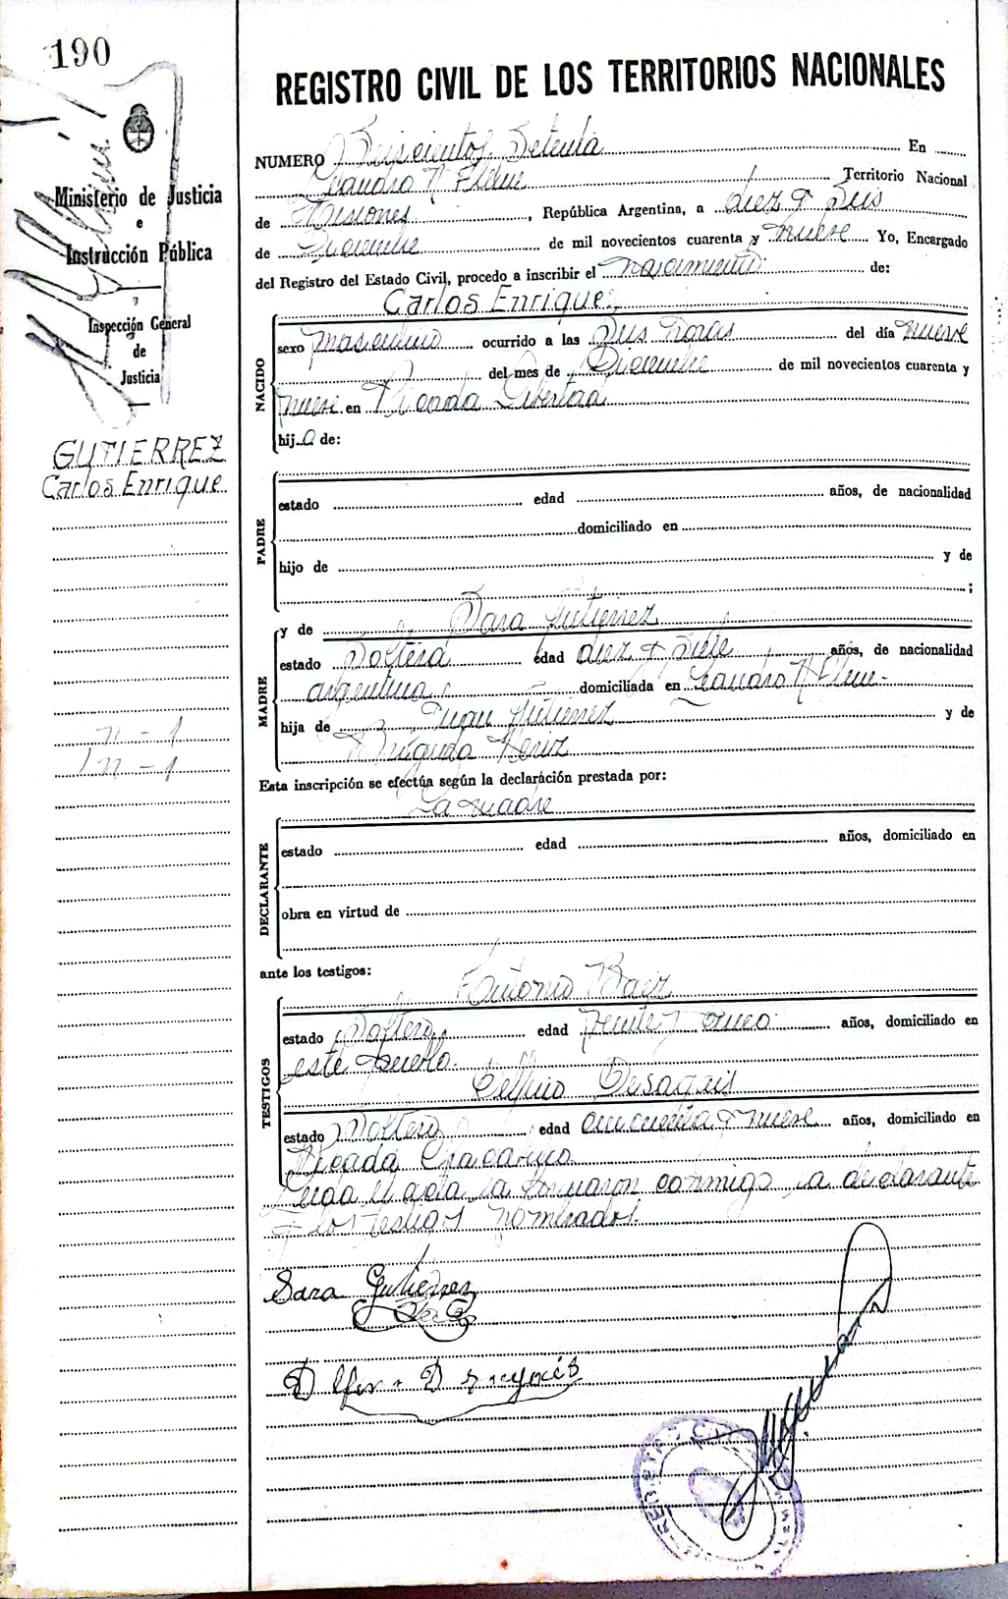 190
Ministerio de Justicia
e
Instrucción Pública
Inspección General
de
Justicia
GUTIERREZ
Carlos Enrique
REGISTRO CIVIL DE LOS TERRITORIOS NACIONALES
NUMERO Seiscientos Setenta En
Leandro N Territorio Nacional
de Misiones, República Argentina, a diez y Seis
de Diciembre de mil novecientos cuarenta y nueve Yo, Encargado
del Registro del Estado Civil, procedo a inscribir el nacimiento de:
Carlos Enrique
NACIDO
sexo masculino ocurrido a las Seis horas del día nueve
del mes de Diciembre de mil novecientos cuarenta y
nueve en Picada Libertad
hijo de:
PADRE
estado edad años, de nacionalidad
domiciliado en
hijo de y de
;
MADRE
y de Sara Gutierrez
estado Soltera edad diez y siete años, de nacionalidad
argentina domiciliada en Leandro N
hija de Juan Gutierrez y de
Esta inscripción se efectúa según la declaración prestada por:
La madre
DECLARANTE
estado edad años, domiciliado en
obra en virtud de
ante los testigos:
Antonio Baez
TESTIGOS
estado Soltero edad años, domiciliado en
este pueblo.
estado Soltero edad cincuenta y nueve años, domiciliado en
Picada
Leida el acta la firmaron conmigo la declarante
y los testigos nombrados.
Sara Gutierrez